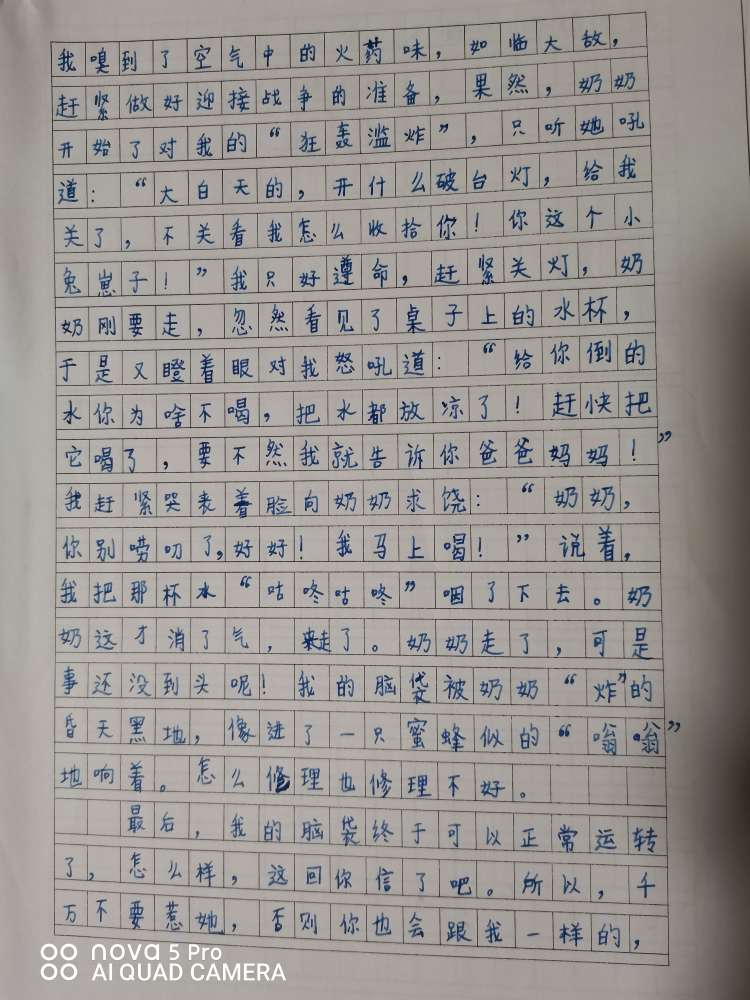 我嗅到了空气中的火药味，如临大敌，
赶紧做好迎接战争的准备，果然，奶奶
开始了对我的“狂轰滥炸”，只听她吼
道：“大白天的，开什么破台灯，给我
关了，不关看我怎么收拾你！你这个小
兔崽子！”我只好遵命，赶紧关灯，奶
奶刚要走，忽然看见了桌子上的水杯，
于是又瞪着眼对我怒吼道：“给你倒的
水你为啥不喝，把水都放凉了！赶快把
它喝了，要不然我就告诉你爸爸妈妈！”
我赶紧哭丧着脸向奶奶求饶：“奶奶，
你别唠叨了，好好！我马上喝！”说着，
我把那杯水“咕咚咕咚”咽了下去。奶
奶这才消了气，走了。奶奶走了，可是
事还没到头呢！我的脑袋被奶奶“炸”的
昏天黑地，像进了一只蜜蜂似的“嗡嗡”
地响着。怎么修理也修理不好。
最后，我的脑袋终于可以正常运转
了，怎么样，这回你信了吧。所以，千
万不要惹她，否则你也会跟我一样的，
nova 5 Pro
AI QUAD CAMERA